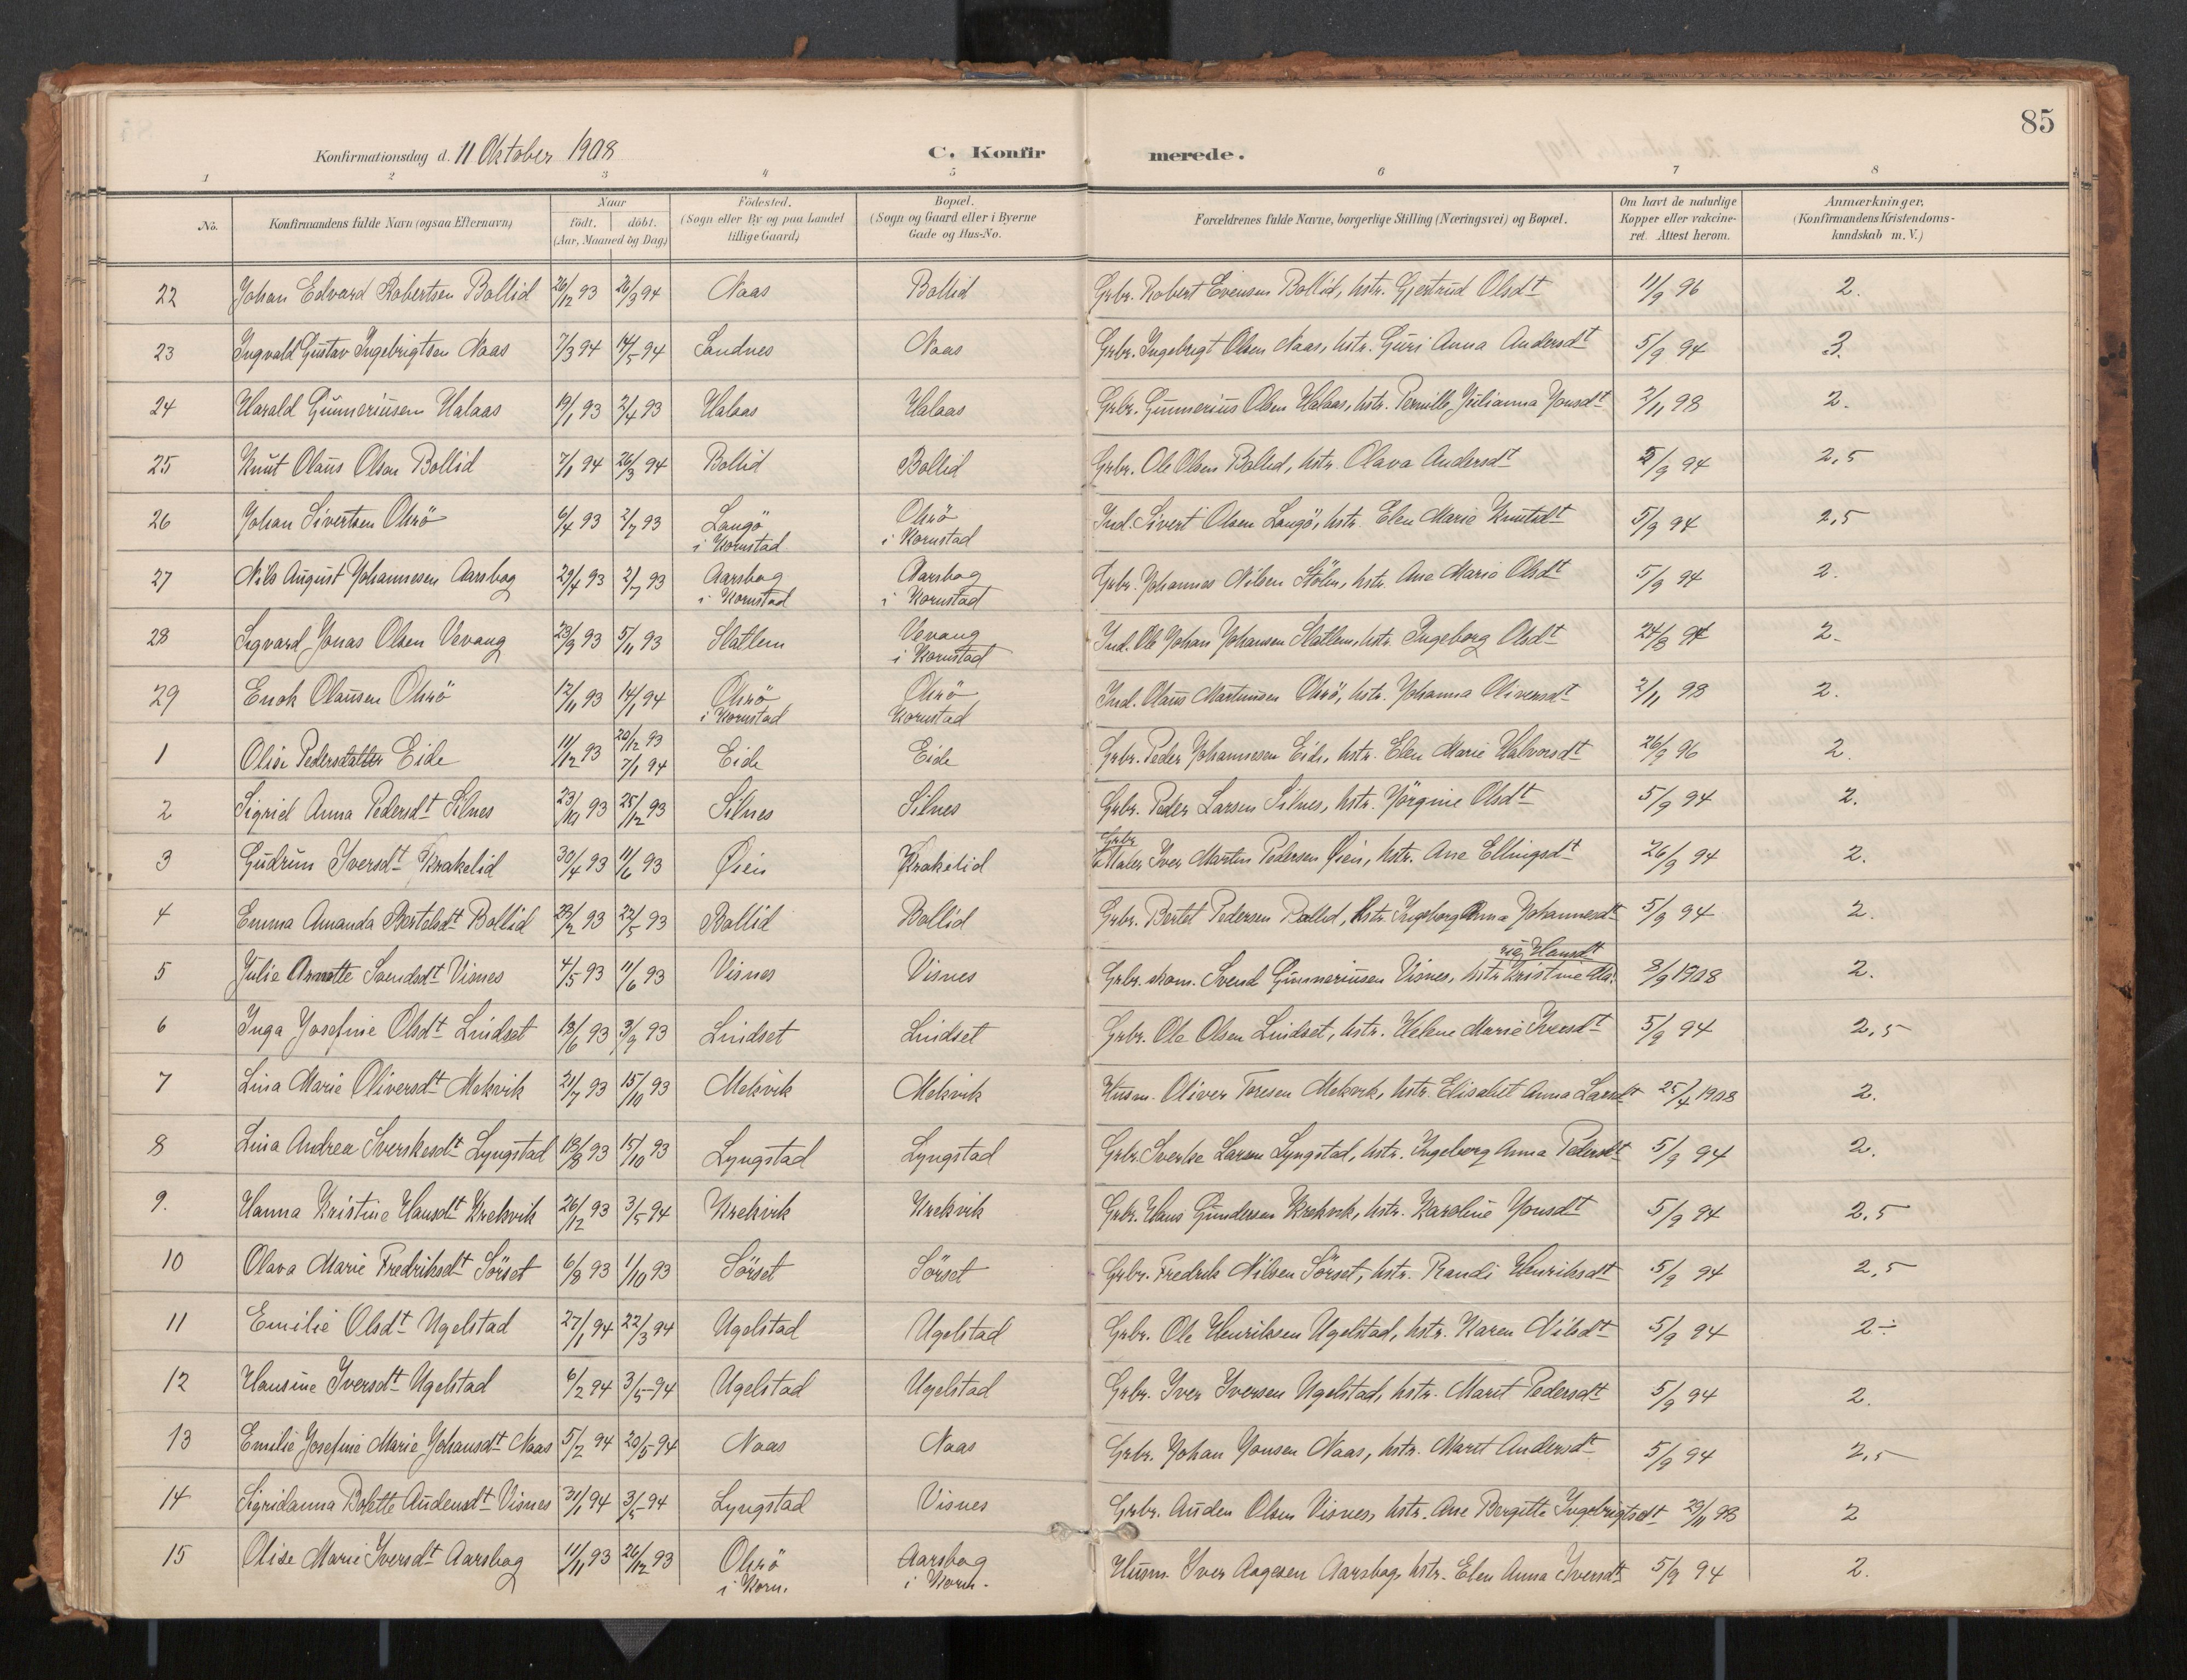 85
Konfirmationsdag d. 11 Oktober 1908
C. Konfirmerede.
1 2 3 4 5 6 7 8
No. Konfirmandens fulde Navn (ogsaa Efternavn) Naar født. døbt. (Aar, Maaned og Dag) Fødested. (Sogn eller By og paa Landet tillige Gaard) Bopæl. (Sogn og Gaard eller i Byerne Gade og Hus-No. Forældrenes fulde Navne, borgerlige Stilling (Næringsvei) og Bopæl. Om havt de naturlige Kopper eller vakcineret. Attest herom. Anmærkninger. (Konfirmandens Kristendomskundskab m. V.)
22 Johan Edvard Robertsen Bollid 26/12 93 26/3 94 Naas Bollid Grbr. Robert Evensen Bollid, hstr. Gjertrud Olsdt 11/9 96 2.
23 Ingvald Gustav Ingebrigtsen Naas 7/3 94 14/5 94 Sandnes Naas Grbr. Ingebrigt Olsen Naas, hstr. Guri Anna Andersdt 5/9 94 3.
24 Harald Gunneriusen Halaas 19/1 93 2/4 93 Halaas Halaas Grbr. Gunnerius Olsen Halaas, hstr. Pernille Julianna Jonsdt 2/11 98 2.
25 Knut Olaus Olsen Bollid 7/1 94 26/3 94 Bollid Bollid Grbr. Ole Olsen Bollid, hstr. Olava Andersdt 5/9 94 2,5
26 Johan Sivertsen Oksö 6/4 93 2/7 93 Langö i Kornstad Oksö i Kornstad Ind. Sivert Olsen Langö, hstr. Elen Marie Knutsdt 5/9 94 2,5
27 Nils August Johannesen Aarsbog 29/4 93 2/7 93 Aarsbog i Kornstad Aarsbog i Kornstad Grbr. Johannes Nilsen Stölen, hstr. Ane Marie Olsdt 5/9 94 2.
28 Sigvard Jonas Olsen Vevang 23/9 93 5/11 93 Slatlem Vevang i Kornstad Ind. Ole Johan Johansen Slatlem, hstr. Ingeborg Olsdt 24/8 94 2.
29 Enok Olausen Oksö 12/11 93 14/1 94 Oksö i Kornstad Oksö Kornstad Ind. Olaus Martinusen Oksö, hstr. Johanna Oliversdt 2/11 98 2.
1 Olise Pedersdatter Eide 11/12 93 20/12 93 7/1 94 Eide Eide Grbr. Peder Johannesen Eide, hstr. Elen Marie Halvorsdt 26/9 96 2.
2 Sigrid Anna Pedersdt Silnes 23/10 93 25/12 93 Silnes Silnes Grbr. Peder Larsen Silnes, hstr. Jörgine Olsdt 5/9 94 2.
3 Gudrun Iversdt Krakelid 30/4 93 11/6 93 Øien Krakelid Grbr. Maler Iver Martin Pedersen Øien, hstr. Ane Ellingsdt 26/9 94 2.
4 Emma Amanda Bertelsdt Bollid 23/2 93 22/5 93 Bollid Bollid Grbr. Bertel Pedersen Bollid, hstr. Ingeborg Anna Johannesdt 5/9 94 2.
5 Julie Annette Svendsdt Visnes 4/5 93 11/6 93 Visnes Visnes Grbr. skom. Svend Gunneriusen Visnes, hstr. Kristine Ma: rie Hansdt 8/9 1908 2.
6 Inga Josefine Olsdt Lindset 18/6 93 3/9 93 Lindset Lindset Grbr. Ole Olsen Lindset, hstr. Helene Marie Iversdt 5/9 94 2,5
7 Lina Marie Oliversdt Mekvik 21/7 93 15/10 93 Mekvik Mekvik Husm. Oliver Toresen Mekvik, hstr. Elisabet Anna Larsdt 25/4 1908 2.
8 Lina Andrea Sverkesdt Lyngstad 18/8 93 15/10 93 Lyngstad Lyngstad Grbr. Sverke Larsen Lyngstad, hstr. Ingeborg Anna Pedersdt 5/9 94 2.
9. Hanna Kristine Hansdt Krekvik 26/12 93 3/5 94 Krekvik Krekvik Grbr. Hans Gundersen Krekvik, hstr. Karoline Jonsdt 5/9 94 2,5
10 Olava Marie Fredriksdt Sörset 6/8 93 1/10 93 Sörset Sörset Grbr. Fredrik Nilsen Sörset, hstr. Randi Henriksdt 5/9 94 2,5
11 Emilie Olsdt Ugelstad 27/1 94 22/3 94 Ugelstad Ugelstad Grbr. Ole Henriksen Ugelstad, hstr. Karen Nilsdt 5/9 94 2÷
12 Hansine Iversdt Ugelstad 6/2 94 3/5 94 Ugelstad Ugelstad Grbr. Iver Iversen Ugelstad, hstr. Marit Pedersdt 5/9 94 2.
13 Emilie Josefine Marie Johansdt Naas 5/2 94 20/5 94 Naas Naas Grbr. Johan Jonsen Naas, hstr. Marit Andersdt 5/9 94 2,5
14 Sigridanna Bolette Audensdt Visnes 31/1 94 3/5 94 Lyngstad Visnes Grbr. Auden Olsen Visnes, hstr. Ane Bergitte Ingebrigtsdt 29/11 98 2
15 Olise Marie Iversdt Aarsbog 11/11 93 26/12 93 Oksö i Korn. Aarsbog i Korn. Husm. Iver Aagesen Aarsbog, hstr. Elen Anna Iversdt 5/9 94 2.